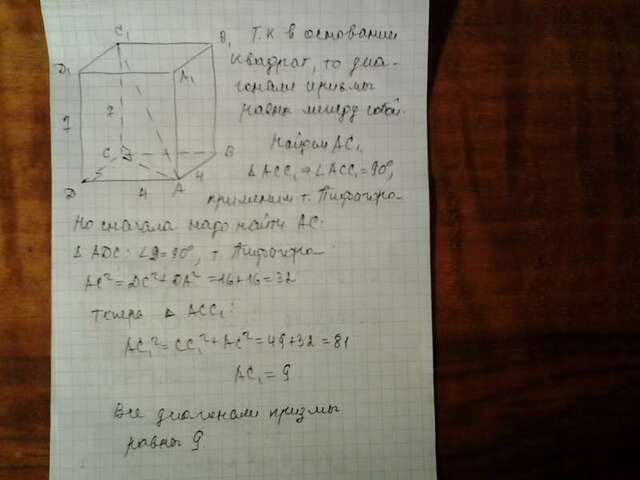 C₁
B₁
D₁
A₁
7
7
C
B
D
A
4
4
Т.к в основании
квадрат, то диа-
гонали призмы
равны между собой.
Найдём AC₁
Δ ACC₁ ⇒ ∠ACC₁ = 90°,
применим т. Пифагора
Но сначала надо найти AC:
Δ ADC: ∠D = 90°, т. Пифагора
AC² = DC² + DA² = 16 + 16 = 32
теперь Δ ACC₁:
AC₁² = CC₁² + AC² = 49 + 32 = 81
AC₁ = 9
Все диагонали призмы
равны 9.